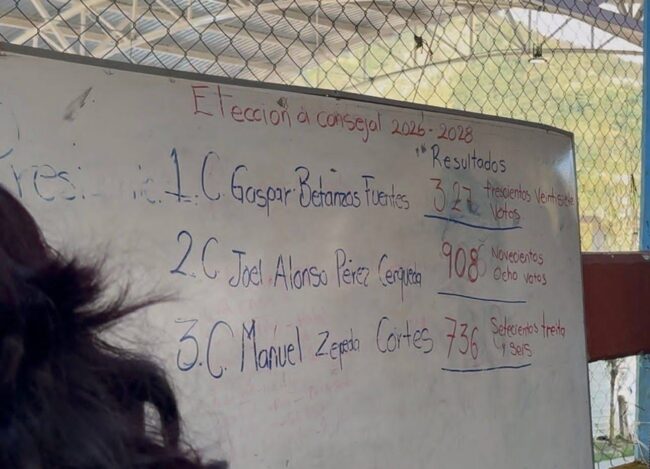 Elección a consejal 2026-2028
Resultados
1. C. Gaspar Betanzos Fuentes 327 trescientos Veintisiete Votos
2. C Joel Alonso Pérez Cerqueda 908 Novecientos Ocho votos
3. C. Manuel Zepeda Cortes 736 Setecientos treita y seis